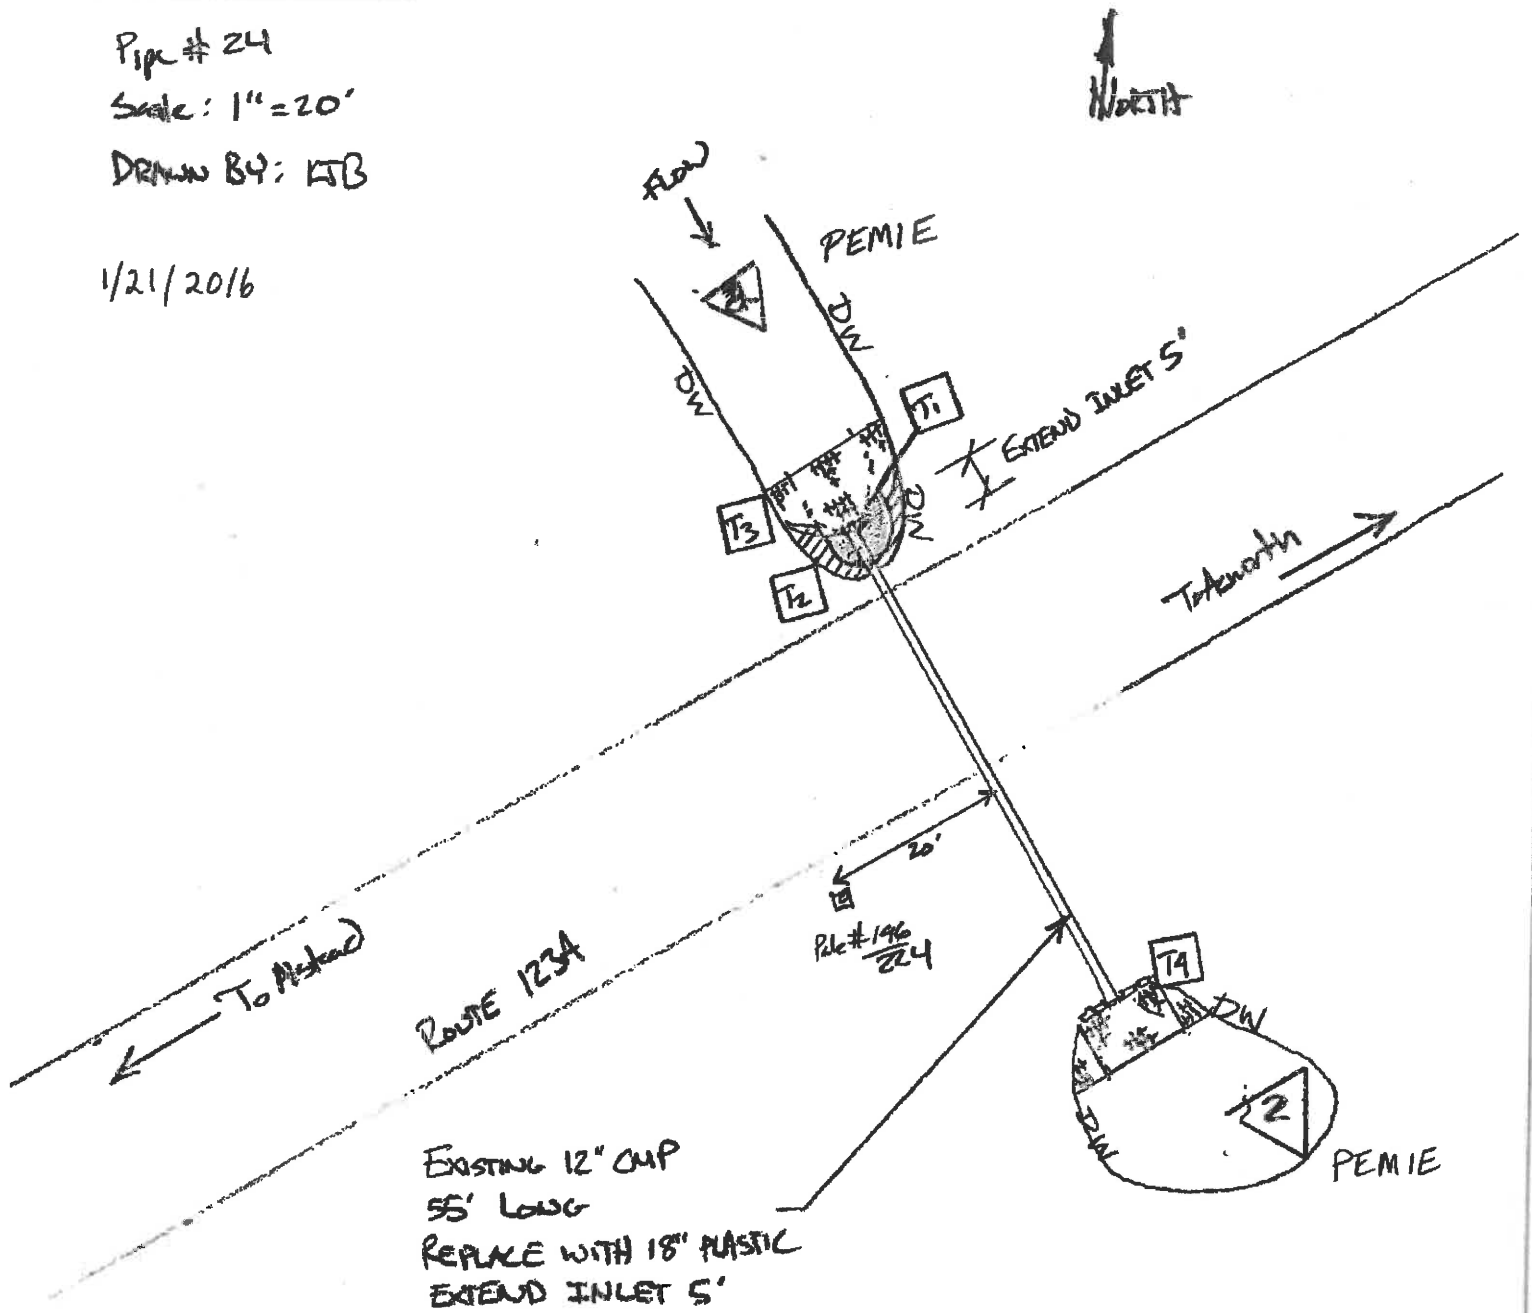 Pipe # 24
Scale: 1" = 20'
DRAWN BY: KTB
1/21/2016
NORTH
FLOW
PEMIE
DW
DW
T1
EXTEND INLET 5'
T3
DW
T2
To Acworth
20'
Pole # 146/224
To Alstead
ROUTE 123A
T4
DW
2
DW
PEMIE
EXISTING 12" CMP
55' LONG
REPLACE WITH 18" PLASTIC
EXTEND INLET 5'